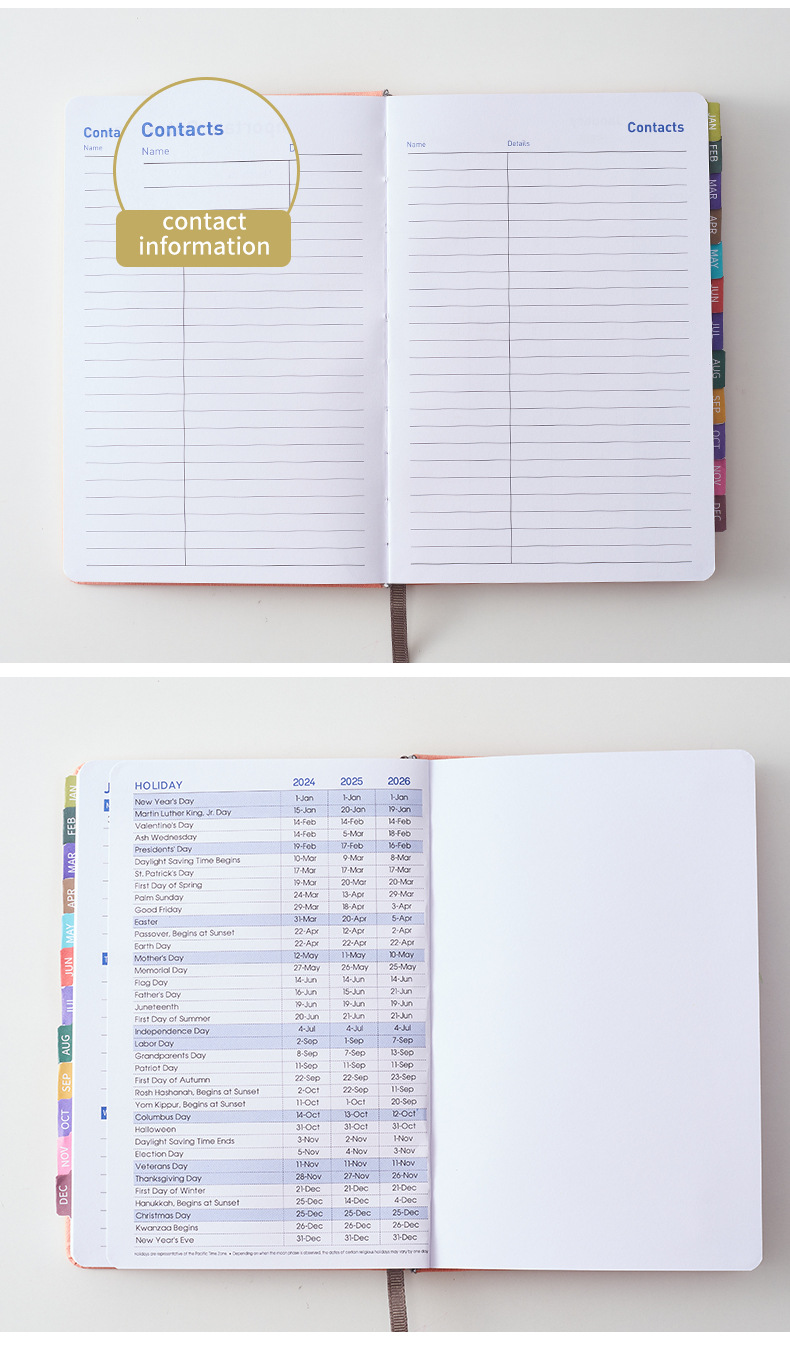 Conta
Name
Contacts
Name D
contact
information
Contacts
Name Details
JAN
FEB
MAR
APR
MAY
JUN
JUL
AUG
SEP
OCT
NOV
DEC
JAN
FEB
MAR
APR
MAY
JUN
JUL
AUG
SEP
OCT
NOV
DEC
HOLIDAY 2024 2025 2026
New Year's Day 1-Jan 1-Jan 1-Jan
Martin Luther King, Jr. Day 15-Jan 20-Jan 19-Jan
Valentine's Day 14-Feb 14-Feb 14-Feb
Ash Wednesday 14-Feb 5-Mar 18-Feb
Presidents' Day 19-Feb 17-Feb 16-Feb
Daylight Saving Time Begins 10-Mar 9-Mar 8-Mar
St. Patrick's Day 17-Mar 17-Mar 17-Mar
First Day of Spring 19-Mar 20-Mar 20-Mar
Palm Sunday 24-Mar 13-Apr 29-Mar
Good Friday 29-Mar 18-Apr 3-Apr
Easter 31-Mar 20-Apr 5-Apr
Passover, Begins at Sunset 22-Apr 12-Apr 2-Apr
Earth Day 22-Apr 22-Apr 22-Apr
Mother's Day 12-May 11-May 10-May
Memorial Day 27-May 26-May 25-May
Flag Day 14-Jun 14-Jun 14-Jun
Father's Day 16-Jun 15-Jun 21-Jun
Juneteenth 19-Jun 19-Jun 19-Jun
First Day of Summer 20-Jun 21-Jun 21-Jun
Independence Day 4-Jul 4-Jul 4-Jul
Labor Day 2-Sep 1-Sep 7-Sep
Grandparents Day 8-Sep 7-Sep 13-Sep
Patriot Day 11-Sep 11-Sep 11-Sep
First Day of Autumn 22-Sep 22-Sep 23-Sep
Rosh Hashanah, Begins at Sunset 2-Oct 22-Sep 11-Sep
Yom Kippur, Begins at Sunset 11-Oct 1-Oct 20-Sep
Columbus Day 14-Oct 13-Oct 12-Oct
Halloween 31-Oct 31-Oct 31-Oct
Daylight Saving Time Ends 3-Nov 2-Nov 1-Nov
Election Day 5-Nov 4-Nov 3-Nov
Veterans Day 11-Nov 11-Nov 11-Nov
Thanksgiving Day 28-Nov 27-Nov 26-Nov
First Day of Winter 21-Dec 21-Dec 21-Dec
Hanukkah, Begins at Sunset 25-Dec 14-Dec 4-Dec
Christmas Day 25-Dec 25-Dec 25-Dec
Kwanzaa Begins 26-Dec 26-Dec 26-Dec
New Year's Eve 31-Dec 31-Dec 31-Dec
Holidays are representative of the Pacific Time Zone. • Depending on when the moon phase is observed, the dates of certain religious holidays may vary by one day